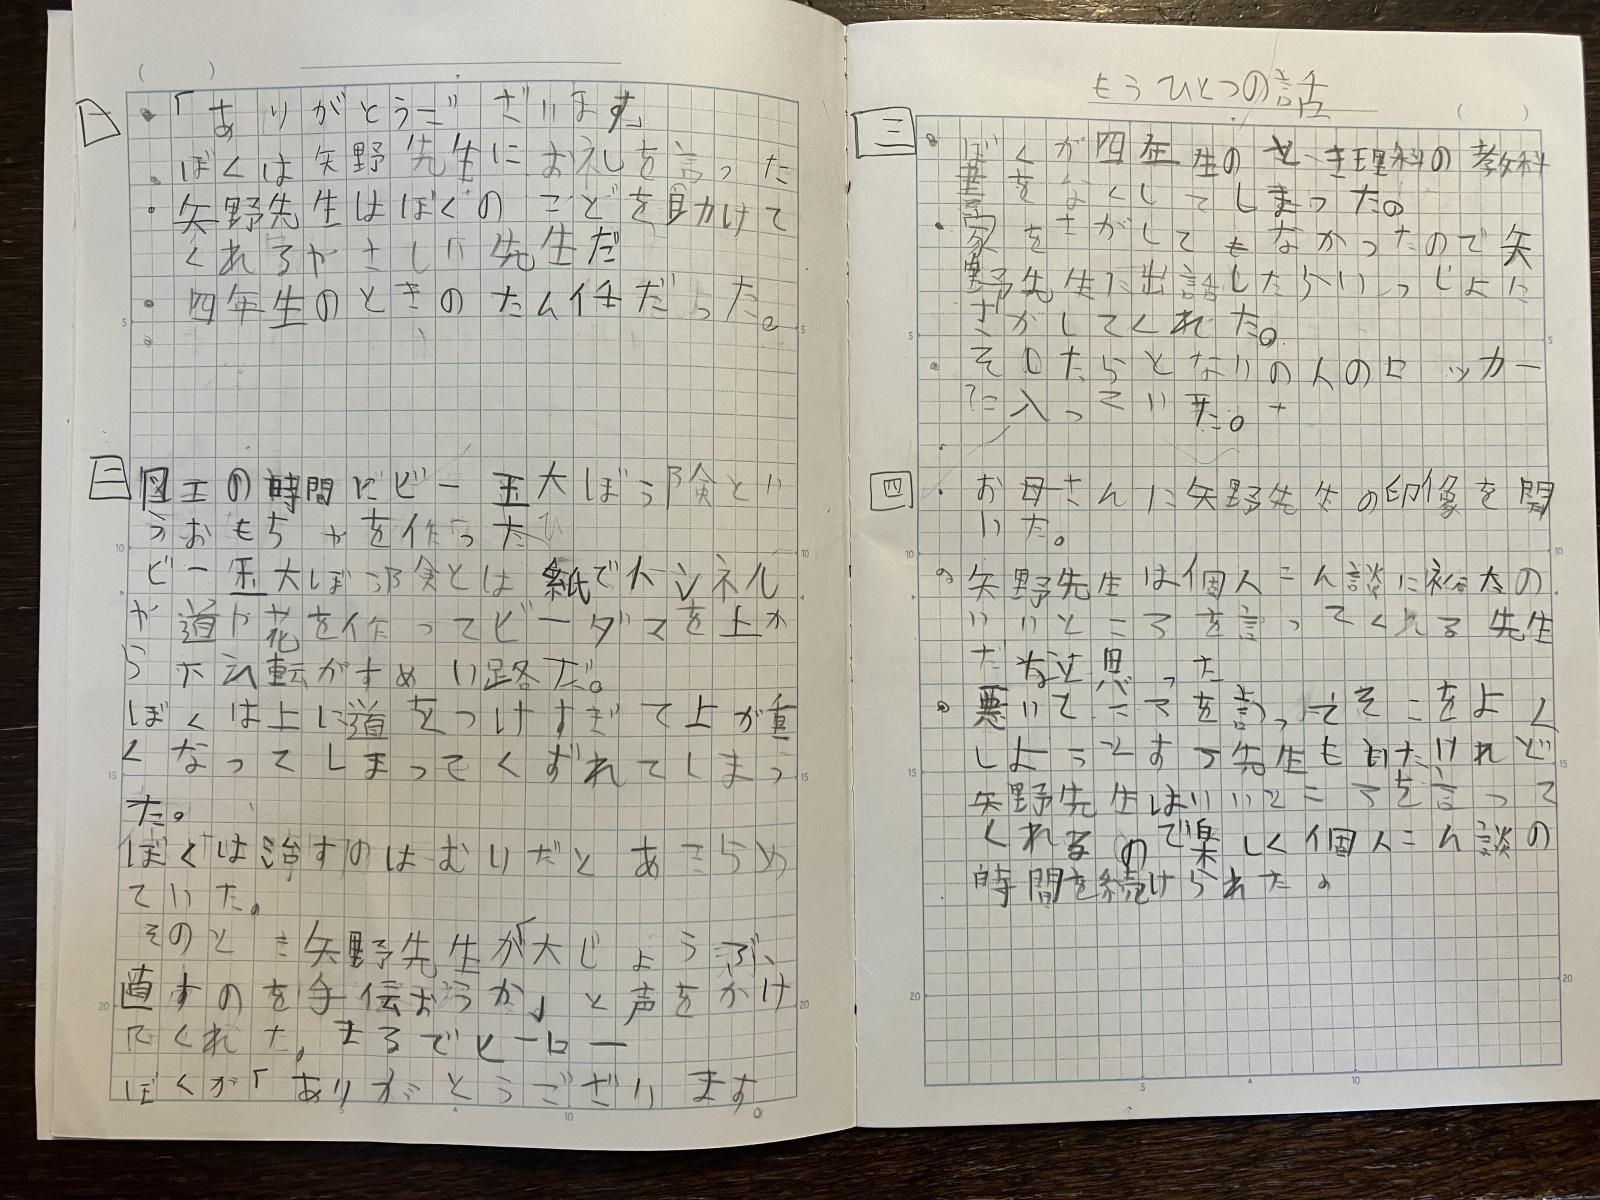 一
・「ありがとうございます」
・ぼくは矢野先生にお礼を言った
・矢野先生はぼくのことを助けて
くれるやさしい先生だ
・四年生のときのたん任だった。
二
図工の時間にビー玉大ぼう険とい
うおもちゃを作った
ビー玉大ぼう険とは紙でトンネル
や道や花を作ってビーダマを上か
ら下に転がすめい路だ。
ぼくは上に道をつけすぎて上が重
くなってしまってくずれてしまっ
た。
ぼくは治すのはむりだとあきらめ
ていた。
そのとき矢野先生が「大じょうぶ、
直すのを手伝おうか」と声をかけ
てくれた。まるでヒーロー
ぼくが「ありがとうございます
もうひとつの話
三
・ぼくが四年生のとき理科の教科
書をなくしてしまった。
・家をさがしてもなかったので矢
野先生に出話したらいっしょに
さがしてくれた。
・そしたらとなりの人のロッカー
に入っていた。
四
・お母さんに矢野先生の印像を聞
いた。
・矢野先生は個人こん談に裕太の
いいところを言ってくれる先生
だなと思った
・悪いところを言ってそこをよく
しようとする先生もいたけれど
矢野先生はいいところを言って
くれるので楽しく個人こん談の
時間を続けられた。